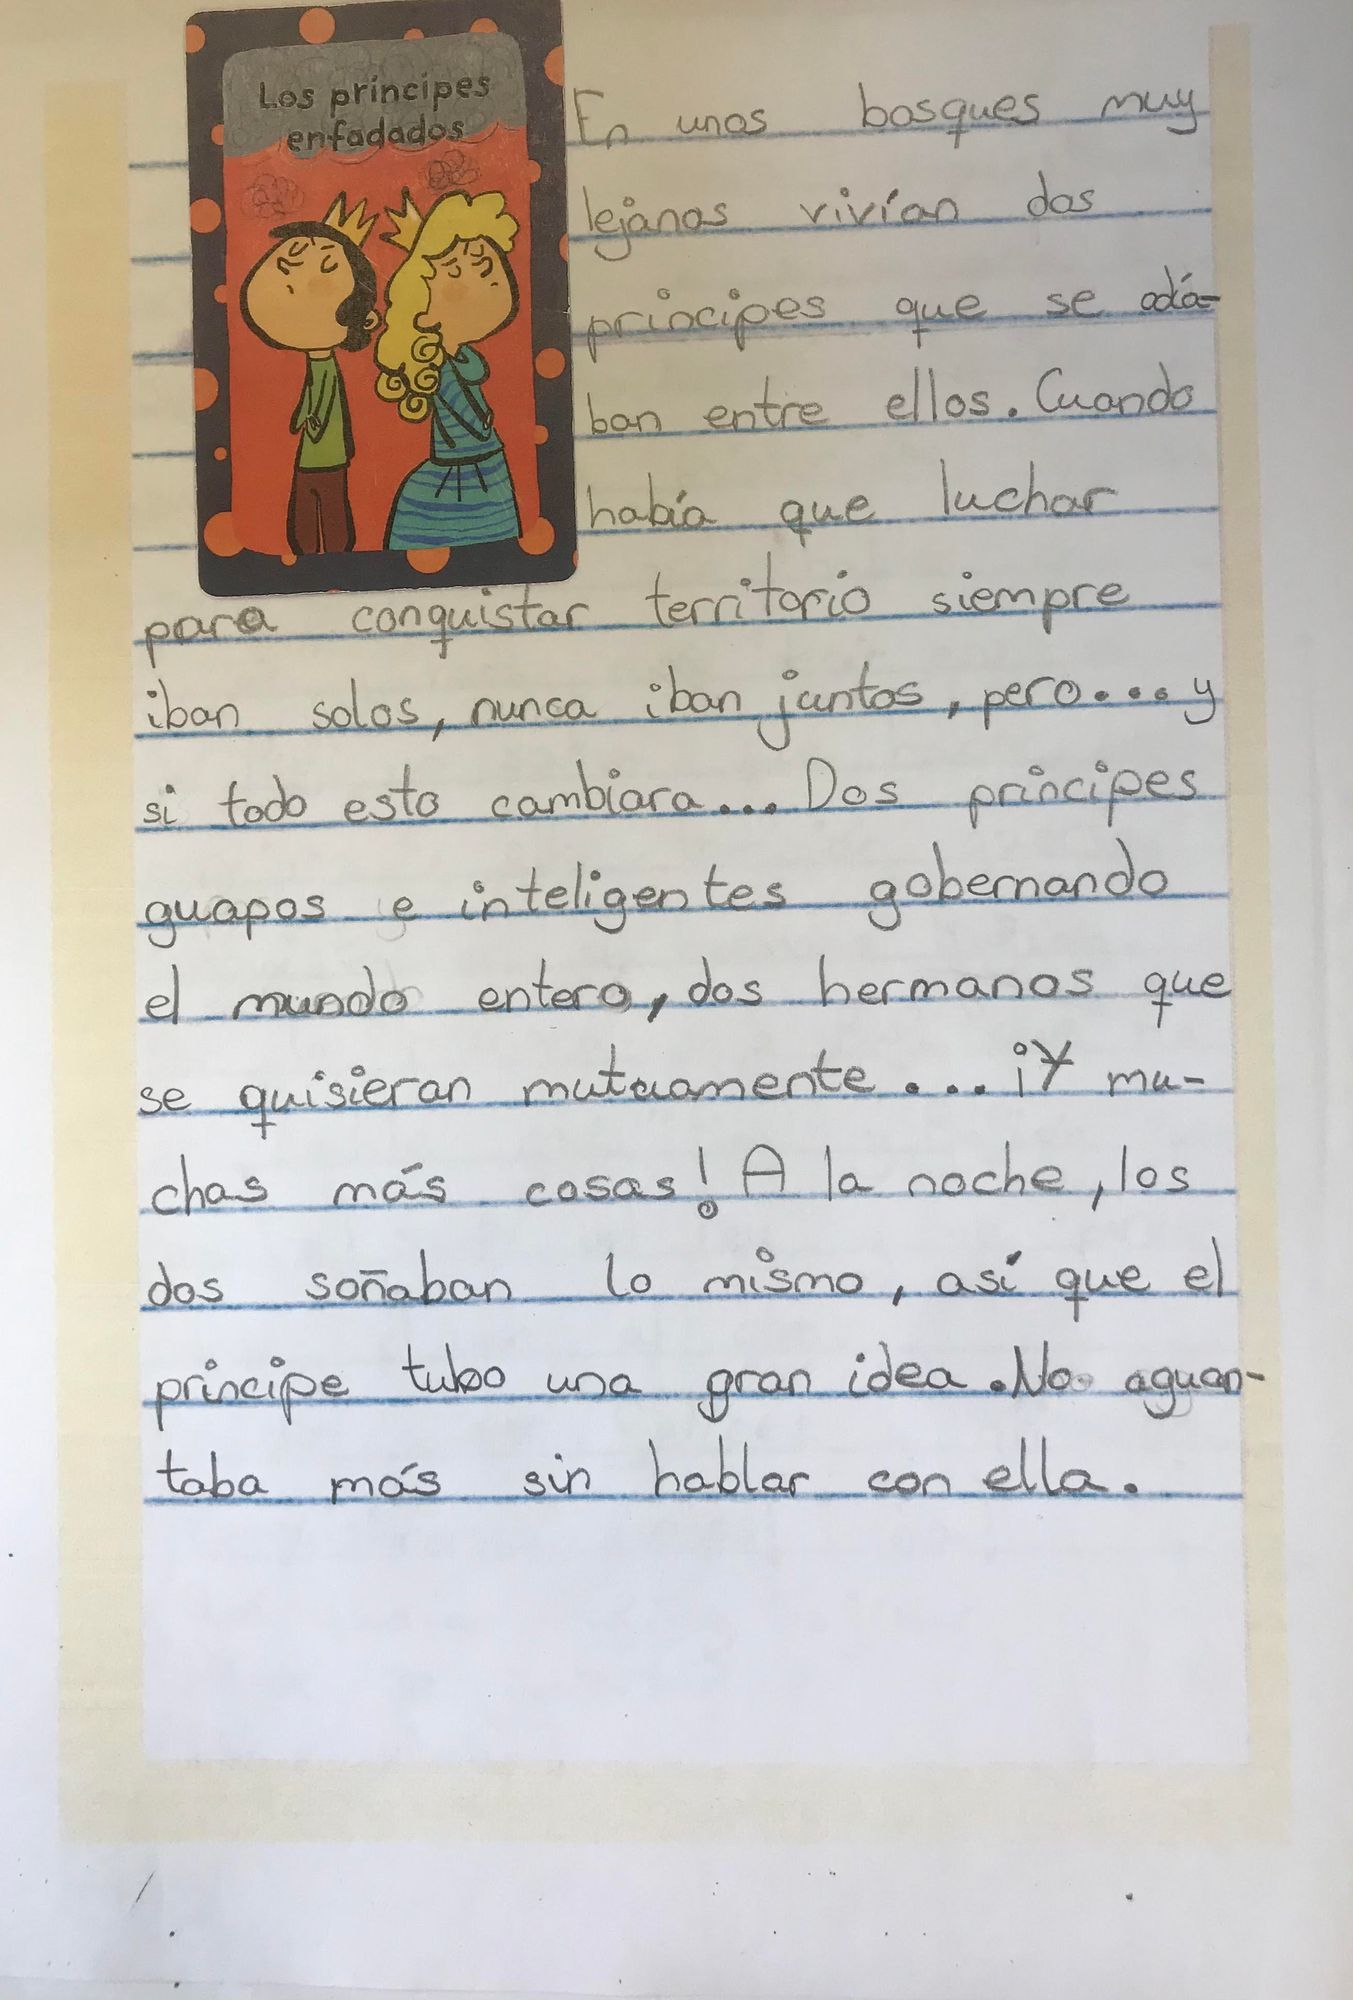 Los príncipes
enfadados
En unos bosques muy
lejanos vivían dos
príncipes que se odia-
ban entre ellos. Cuando
había que luchar
para conquistar territorio siempre
iban solos, nunca iban juntos, pero... y
si todo esto cambiara... Dos príncipes
guapos e inteligentes gobernando
el mundo entero, dos hermanos que
se quisieran mutuamente... ¡Y mu-
chas más cosas! A la noche, los
dos soñaban lo mismo, así que el
príncipe tubo una gran idea. No aguan-
taba más sin hablar con ella.